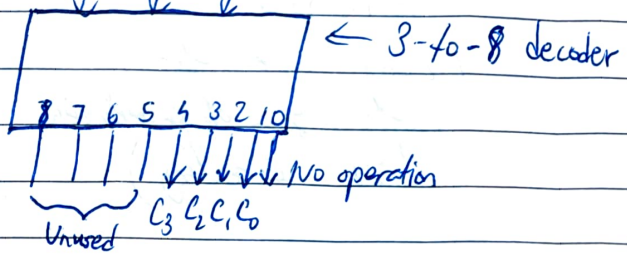 ← 3-to-8 decoder
8 7 6 5 4 3 2 1 0
No operation
C₃ C₂ C₁ C₀
Unused